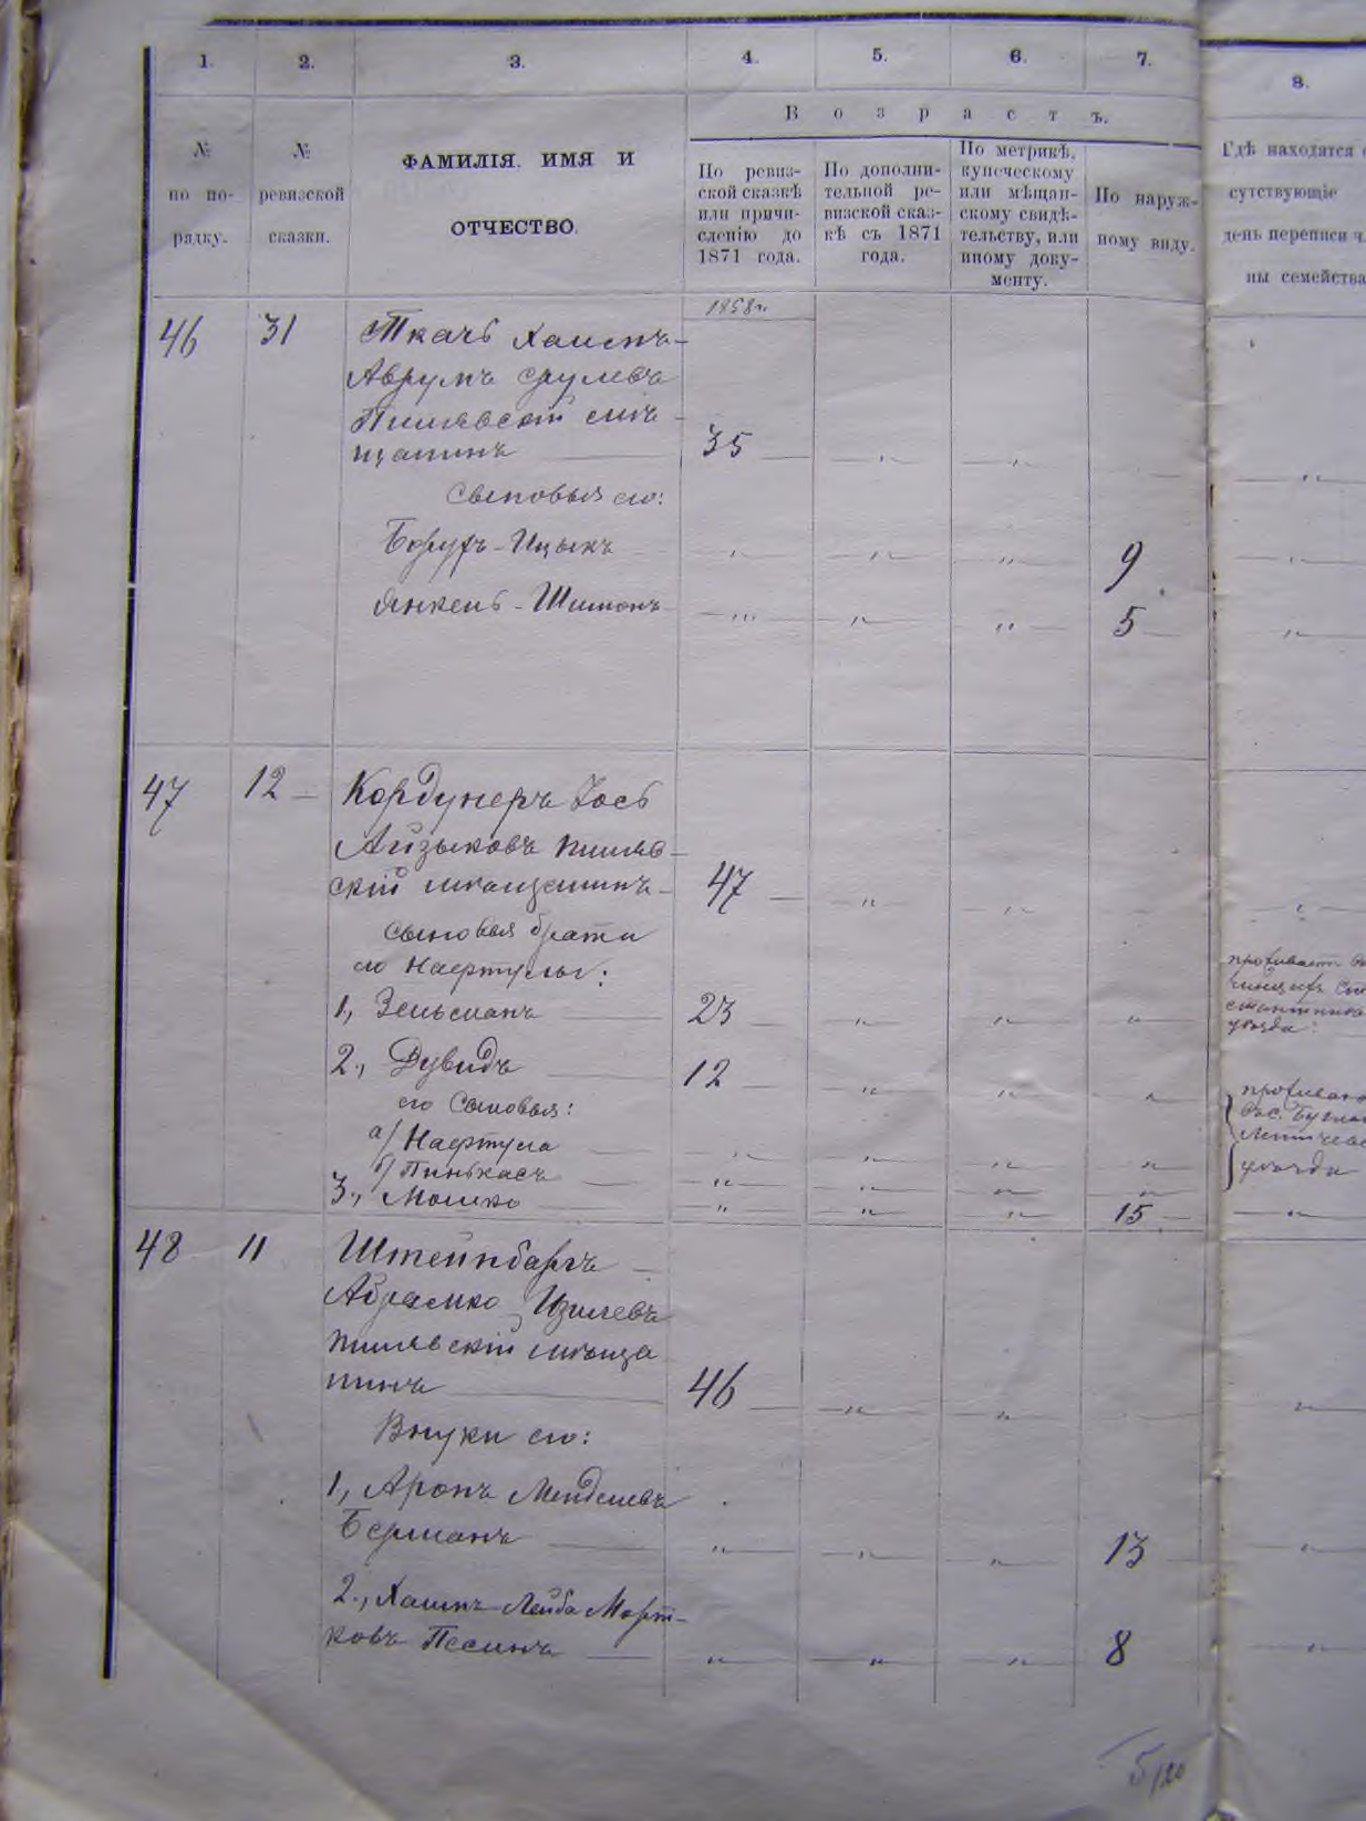 1. 2. 3. 4. 5. 6. 7. 8.
Возрастъ.
№ по по-рядку.
№ ревизской сказки.
ФАМИЛІЯ. ИМЯ И
ОТЧЕСТВО.
По ревиз-
ской сказкѣ
или причи-
сленію до
1871 года.
По дополни-
тельной ре-
визской сказ-
кѣ съ 1871
года.
По метрикѣ,
купеческому
или мѣщан-
скому свидѣ-
тельству, или
иному доку-
менту.
По наруж-
ному виду.
Гдѣ находятся
сутствующіе
день переписи
ны семейства
1858 г.
46 31 Ткачъ Хаимъ-
Аврумъ Срулевъ
Пилявскій мѣ-
щанинъ 35
сыновья его:
Борухъ-Ицыкъ 9
Янкель-Шимонъ 5
47 12 Кордунеръ Іось
Айзыковъ пиляв-
скій мѣщанинъ 47
сыновья брата
его Нафтулы:
1, Зельманъ 23
2, Дувидъ 12
его сыновья:
а/ Нафтула
б/ Пинькасъ
3, Мошко 15
проживаетъ
уѣзда
уѣзда
48 11 Штейнбаргъ
Абрамко Изилевъ
пилявскій мѣща
нинъ 46
Внуки его:
1, Аронъ Менделевъ
Берманъ 13
2, Хаимъ-Лейба Морт-
ковъ Песинъ 8